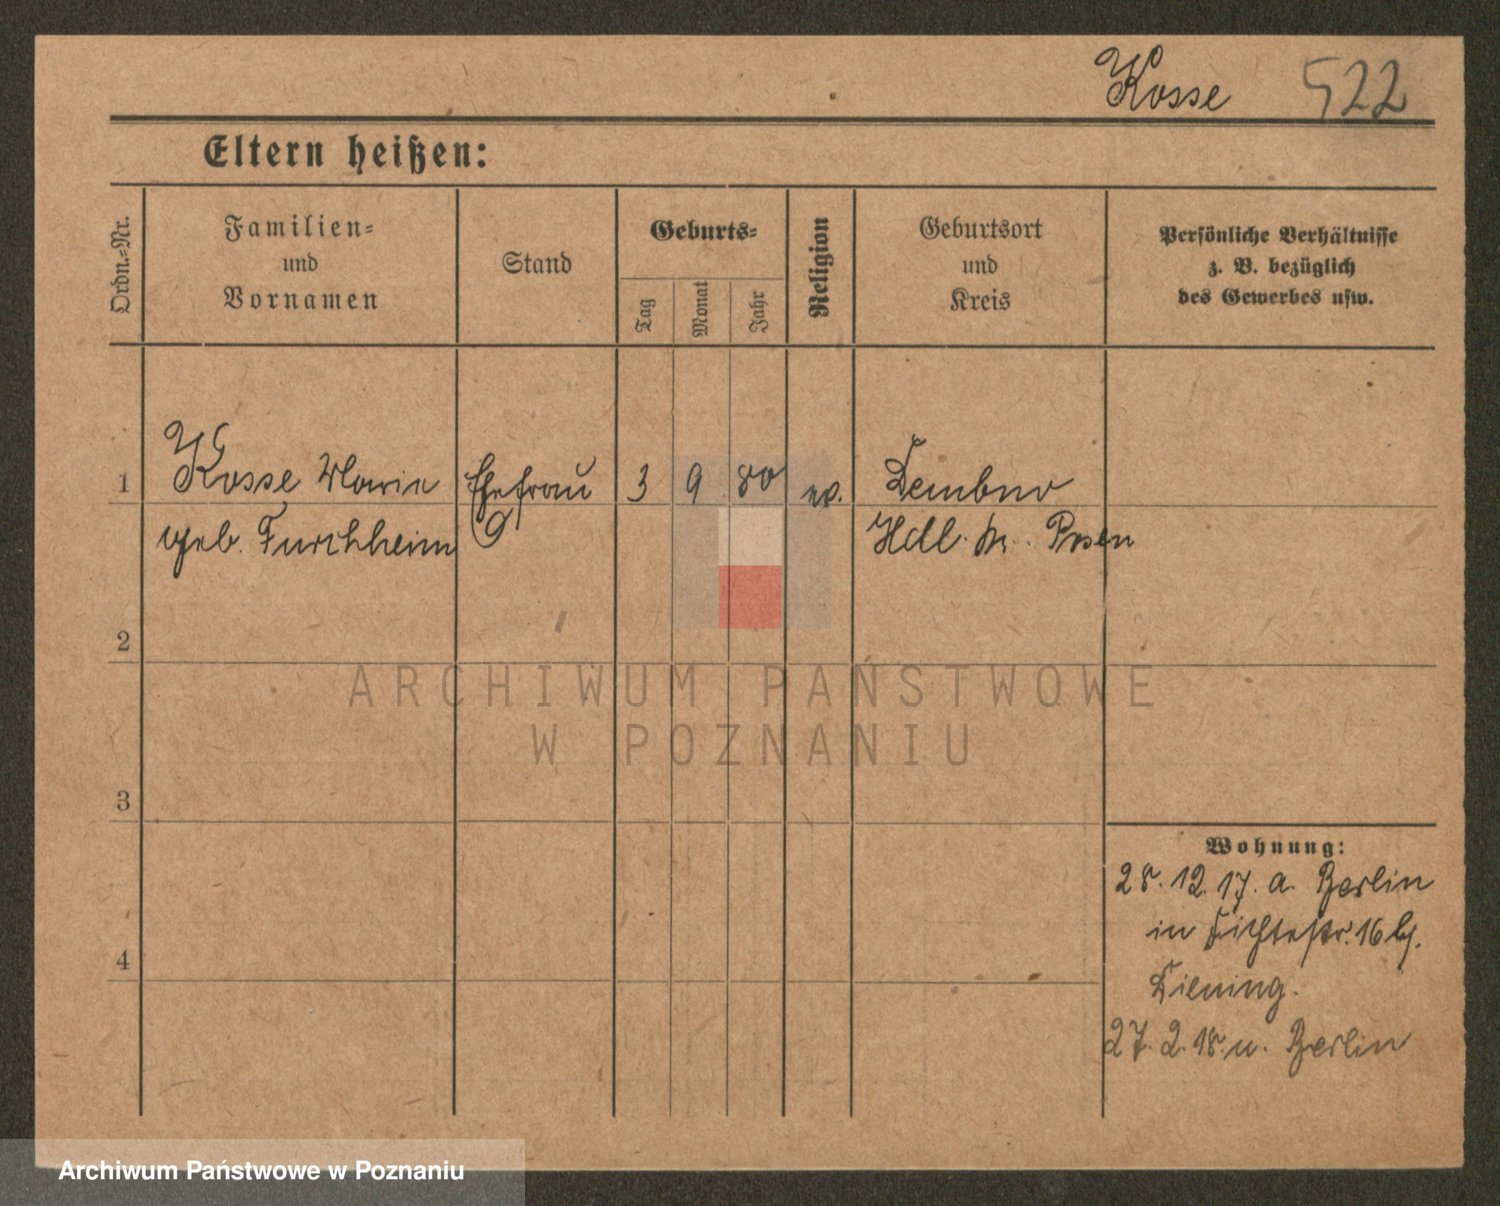 Kosse 522
Eltern heißen:
Ordn.-Nr.
Familien-
und
Vornamen
Stand
Geburts-
Tag
Monat
Jahr
Religion
Geburtsort
und
Kreis
Persönliche Verhältnisse
z. B. bezüglich
des Gewerbes usw.
1 Kosse Marie Ehefrau 3 9 80 ev. Dembno
geb. Furchheim Posen
2
3
4
Wohnung:
28.12.17. a. Berlin
in Fichtestr. 16 b/.
Diening.
27.2.18. n. Berlin
ARCHIWUM PAŃSTWOWE
W POZNANIU
Archiwum Państwowe w Poznaniu